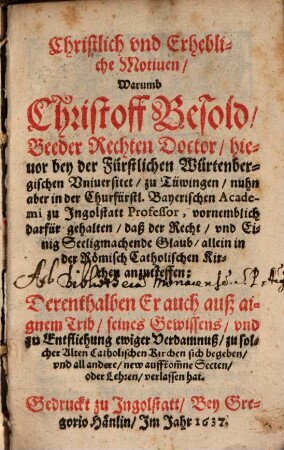 Christlich vnd Erhebli-
che Motiuen/
Warumb
Christoff Besold/
Beeder Rechten Doctor/ hie-
uor bey der Fürstlichen Würtenber-
gischen Vniuersitet/ zu Tüwingen/ nuhn
aber in der Churfürstl. Bayerischen Acade-
mi zu Ingolstatt Professor, vornemblich
darfür gehalten/ daß der Recht/ vnd Ei-
nig Seeligmachende Glaub/ allein in
der Römisch Catholischen Kir-
chen anzutreffen:
Derenthalben Er auch auß ai-
gnem Trib/ seines Gewissens/ vnd
zu Entfliehung ewiger Verdamnuß/ zu sol-
cher Alten Catholischen Kirchen sich begeben/
vnd all andere/ new auffkom̃ne Secten/
oder Lehren/ verlassen hat.
Gedruckt zu Ingolstatt/ Bey Gre-
gorio Hänlin/ Im Jahr 1637.